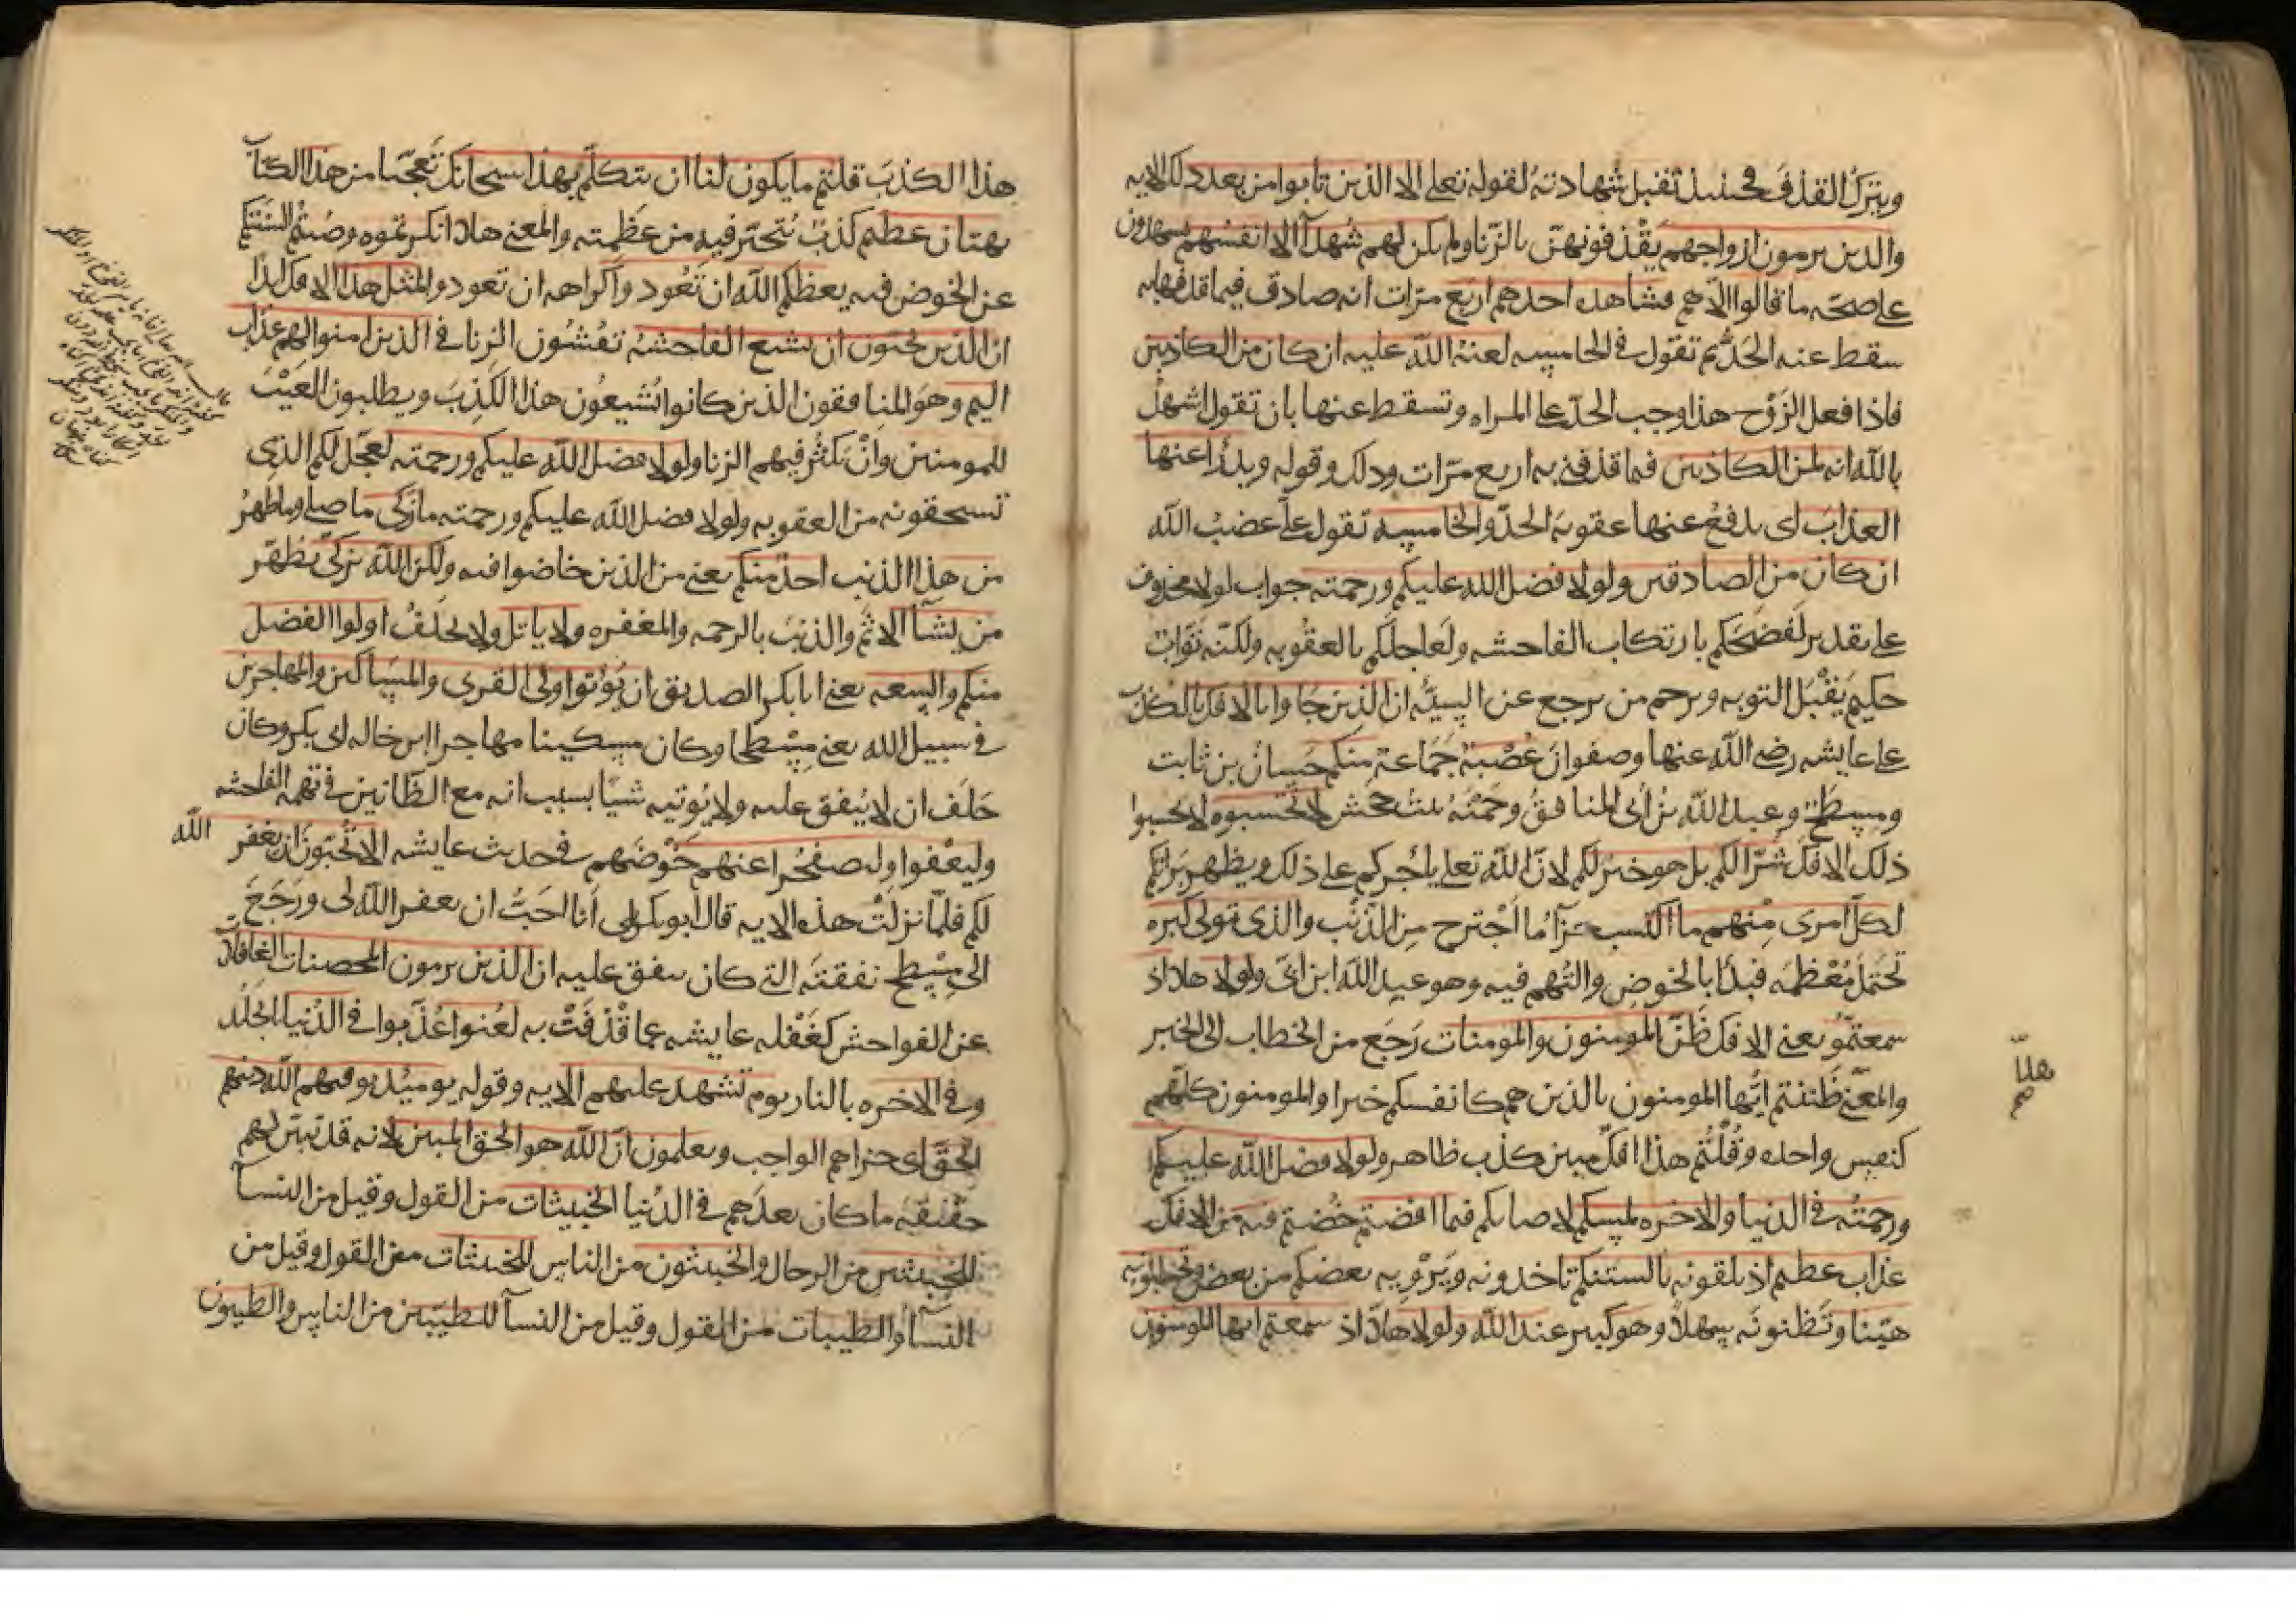 ويترك القذف فحينئذ تقبل شهادته لقوله تعلى الا الذين تابوا من بعد ذلك الايه
والذين يرمون ازواجهم يقذفونهن بالزنا ولم يكن لهم شهدآ الا انفسهم يشهدون
على صحة ما قالوا الا هم فشاهد احدهم اربع مرات انه صادق فيما قذفها به
سقط عنه الحد ثم تقول في الخامسه لعنة الله عليه ان كان من الكاذبين
فاذا فعل الزوج هذا وجب الحد على المراه وتسقط عنها بان تقول اشهد
بالله انه لمن الكاذبين فيما قذفني به اربع مرات وذلك وقوله ويدرأ عنها
العذاب اى يدفع عنها عقوبة الحد والخامسه تقول على غضب الله
ان كان من الصادقين ولولا فضل الله عليكم ورحمته جواب لولا محذوف
على تقدير لفضحكم بارتكاب الفاحشه ولعاجلكم بالعقوبه ولكنه تواب
حكيم يقبل التوبه ويرحم من يرجع عن السيئه ان الذين جاوا بالافك بالكذب
على عايشه رضي الله عنها وصفوان عصبة جماعة منكم حسان بن ثابت
ومسطح وعبد الله بن أبى المنافق وحمنة بنت جحش لا تحسبوه لا تحسبوا
ذلك الافك شرا لكم بل هو خير لكم لان الله تعلى ياجركم على ذلك ويظهر برآتكم
لكل امرى منهم ما اكتسب جزآ ما اجترح من الذنب والذى تولى كبره
تحمل معظمه فبدأ بالخوض والتهم فيه وهو عبد الله ابن ابى ولولا هلا اذ
سمعتموه يعنى الافك ظن المومنون والمومنات رجع من الخطاب الى الخبر
والمعنى ظننتم ايها المومنون بالذين هم كانفسكم خيرا والمومنون كلهم
كنفس واحده وقلتم هذا افك مبين كذب ظاهر ولولا فضل الله عليكم
ورحمته في الدنيا والاخره لمسكم لاصابكم فيما افضتم خضتم فيه من الافك
عذاب عظيم اذ تلقونه بالسنتكم تاخذونه ويرويه بعضكم من بعض وتحسبونه
هينا وتظنونه سهلا وهو كبير عند الله ولولا هلا اذ سمعتم ايها المومنون
هلا
هذا الكذب قلتم ما يكون لنا ان نتكلم بهذا سبحانك تعجبا من هذا
بهتان عظيم كذب يتحير فيه من عظمته والمعنى هلا انكرتموه وصنتم السنتكم
عن الخوض فيه يعظكم الله ان تعود وآكراهه ان تعودوا لمثل هذا الافك ابدا
ان الذين يحبون ان تشيع الفاحشة تفشون الزنا في الذين امنوا لهم عذاب
اليم وهو المنافقون الذين كانوا يشيعون هذا الكذب ويطلبون العيب
للمومنين وان يكثر فيهم الزنا ولولا فضل الله عليكم ورحمته لعجل لكم الذى
تستحقونه من العقوبه ولولا فضل الله عليكم ورحمته ما زكى ما صلح وما طهر
من هذا الذنب احد منكم يعنى من الذين خاضوا فيه ولكن الله يزكى يطهر
من يشآ الاثم والذنب بالرحمه والمغفره ولا ياتل ولا يحلف اولوا الفضل
منكم والسعه يعنى ابا بكر الصديق ان يؤتوا اولى القربى والمساكين والمهاجرين
في سبيل الله يعنى مسطحا وكان مسكينا مهاجرا ابن خاله ابى بكر وكان
حلف ان لا ينفق عليه ولا يوتيه شيا بسبب انه مع الظانين في تهمه الفاحشه
وليعفوا وليصفحوا عنهم خوضهم في حديث عايشه الا تحبون ان يغفر الله
لكم فلما نزلت هذه الايه قال ابو بكر بلى أنا احب ان يغفر الله لى ورجع
الى مسطح نفقته التى كان ينفق عليه ان الذين يرمون المحصنات الغافلات
عن الفواحش كغفله عايشه عما قذفت به لعنوا عذبوا في الدنيا الجلد
وفي الاخره بالنار يوم تشهد عليهم الايه وقوله يوميذ يوفيهم الله دينهم
الحق اى جزاهم الواجب ويعلمون ان الله هو الحق المبين لانه قد تبين لهم
حقيقة ما كان يعدهم في الدنيا الخبيثات من القول وقيل من النسآ
للخبيثين من الرجال والخبيثون من الناس للخبيثات من القول وقيل من
النسآ والطيبات من القول وقيل من النسآ للطيبين من الناس والطيبون